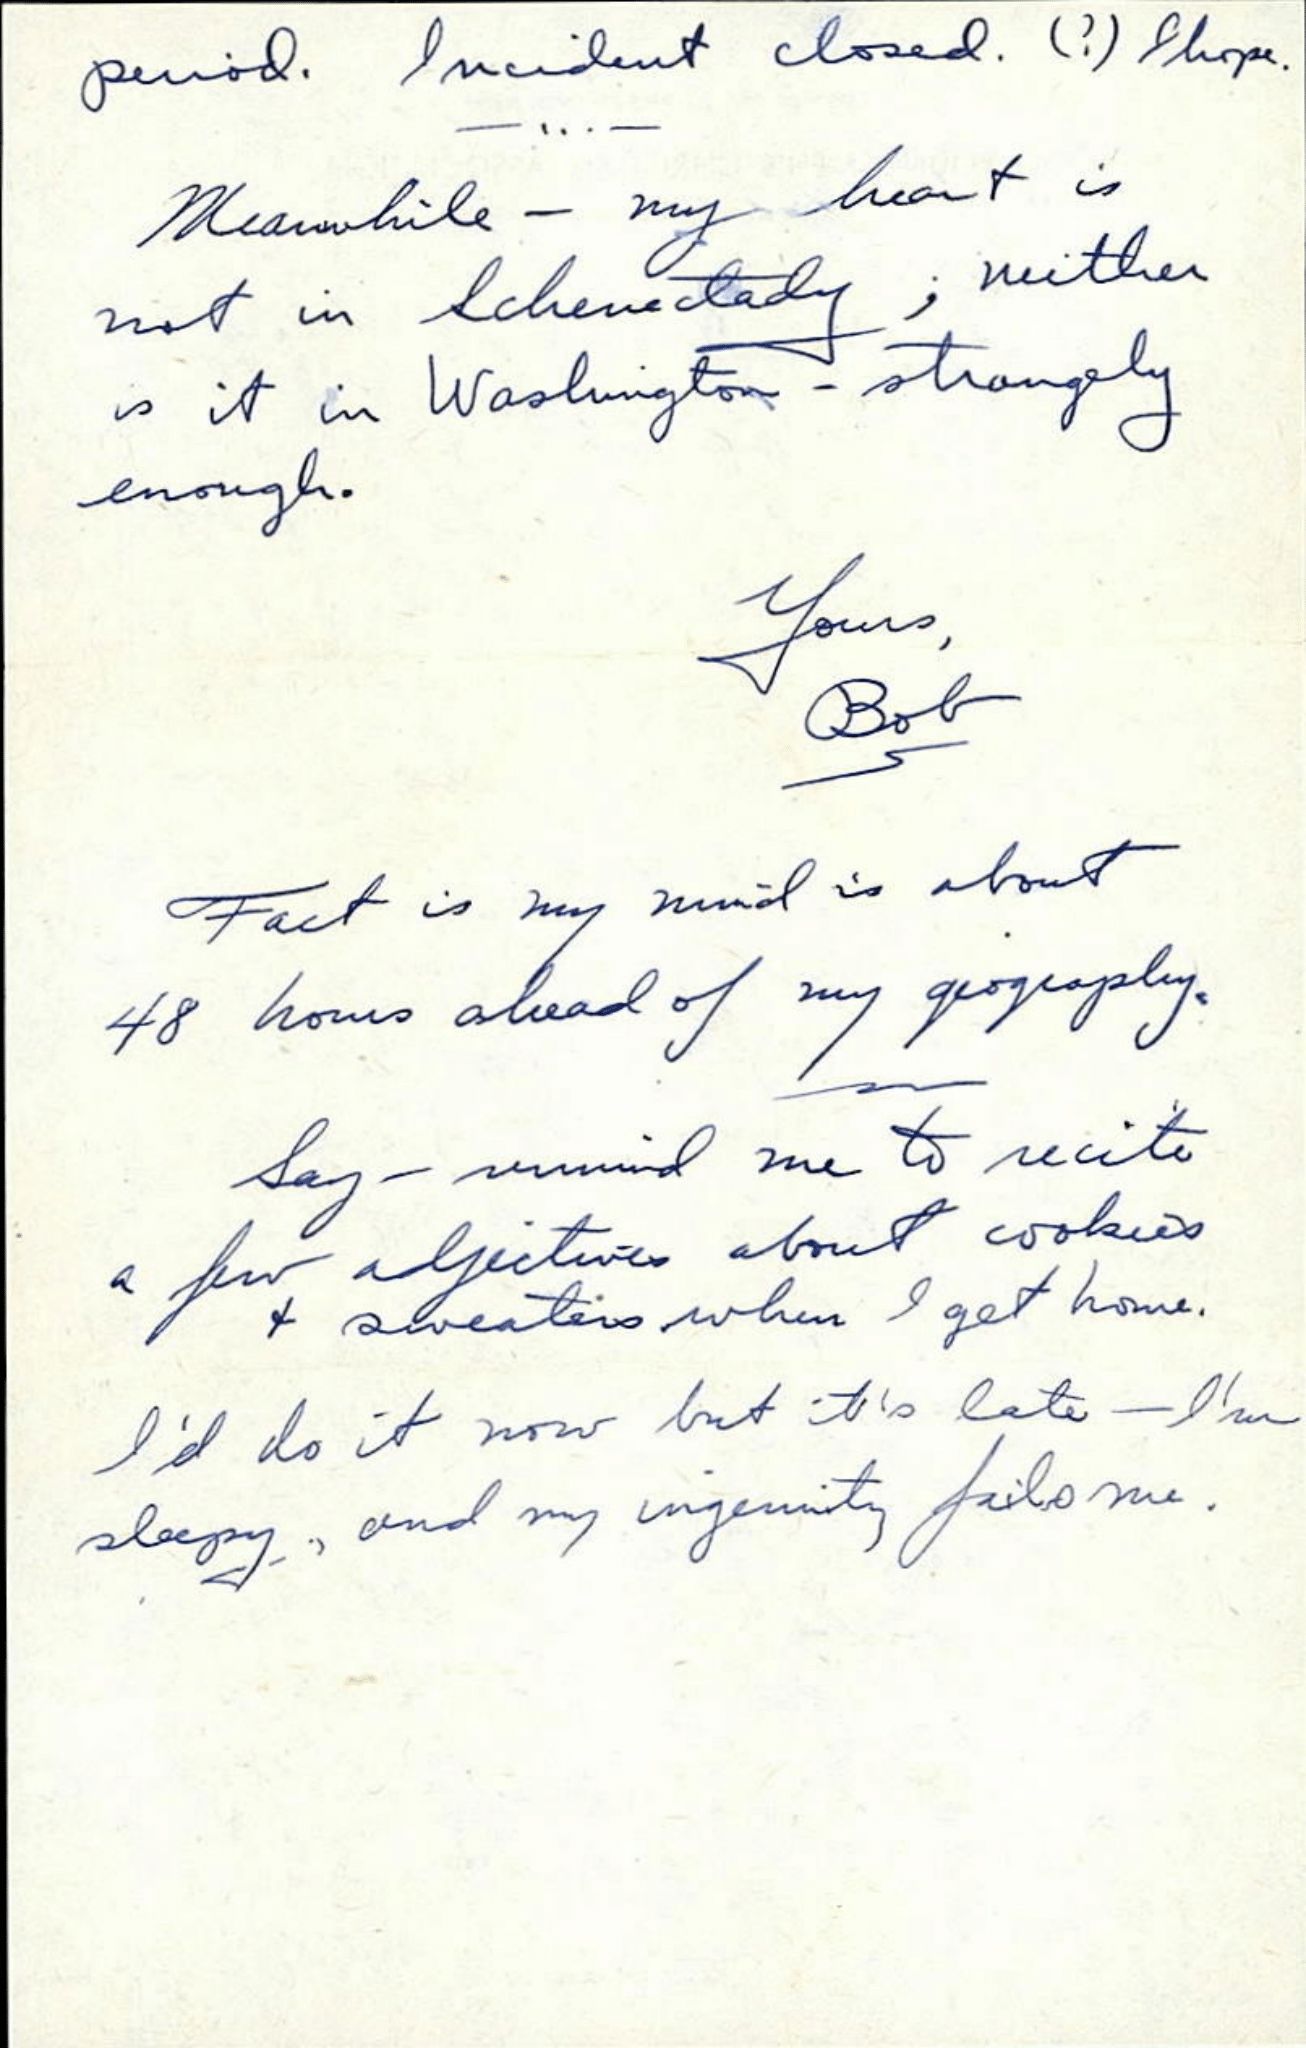 period. Incident closed. (?) I hope.
Meanwhile - my heart is
not in Schenectady; neither
is it in Washington - strangely
enough.
Yours,
Bob
Fact is my mind is about
48 hours ahead of my geography.
Say - remind me to recite
a few adjectives about cookies
+ sweaters when I get home.
I'd do it now but it's late - I'm
sleepy, and my ingenuity fails me.